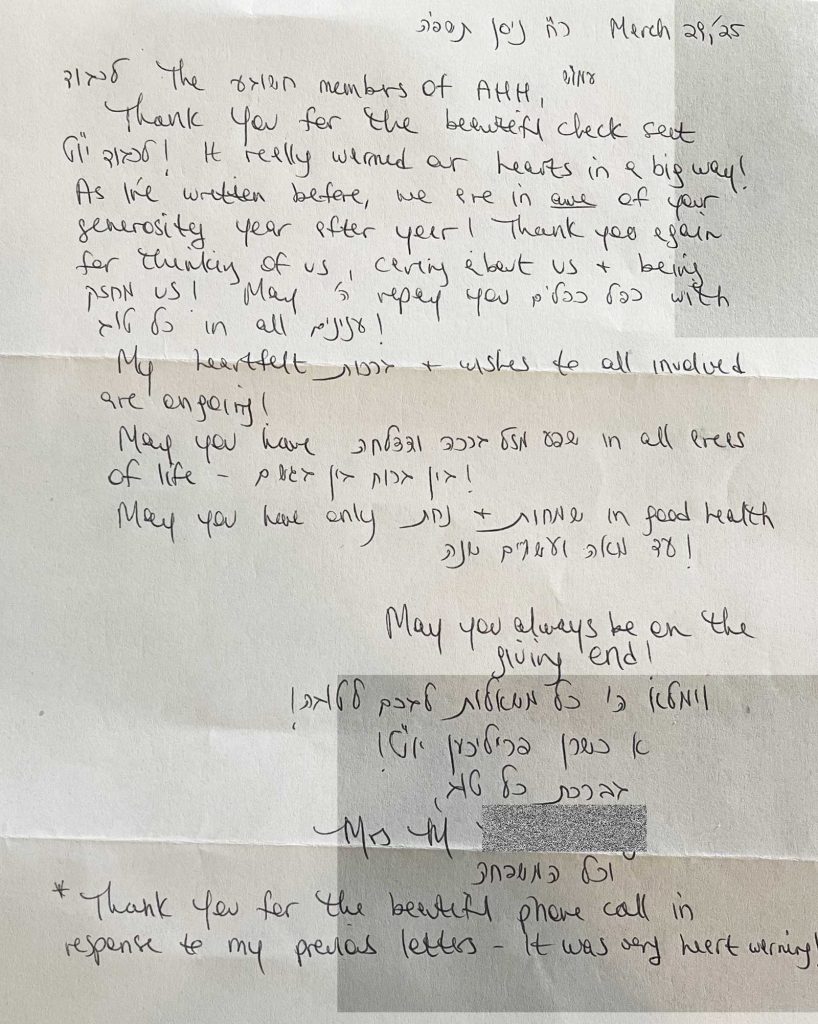 כ"ח ניסן תשפ"ה March 29/25
לכבוד The חשובע members of AHH, עמו"ש
Thank you for the beautiful check sent
לכבוד יו"ט! It really warmed our hearts in a big way!
As I've written before, we are in awe of your
generosity year after year! Thank you again
for thinking of us, caring about us + being
מחזק us! May ה' repay you כפל כפלים with
כל טוב in all ענינים!
My heartfelt ברכות + wishes to all involved
are ongoing!
May you have שפע מזל ברכה והצלחה in all areas
of life - בין ברוח בין בגשם!
May you have only נחת + שמחות in good health
עד מאה ועשרים שנה!
May you always be on the
giving end!
וימלא ה' כל משאלות לבכם לטובה!
א כשרן פרייליכען יו"ט!
בברכת כל טוב,
Mrs M
וכל המשפחה
* Thank you for the beautiful phone call in
response to my previous letters - It was very heart warming!